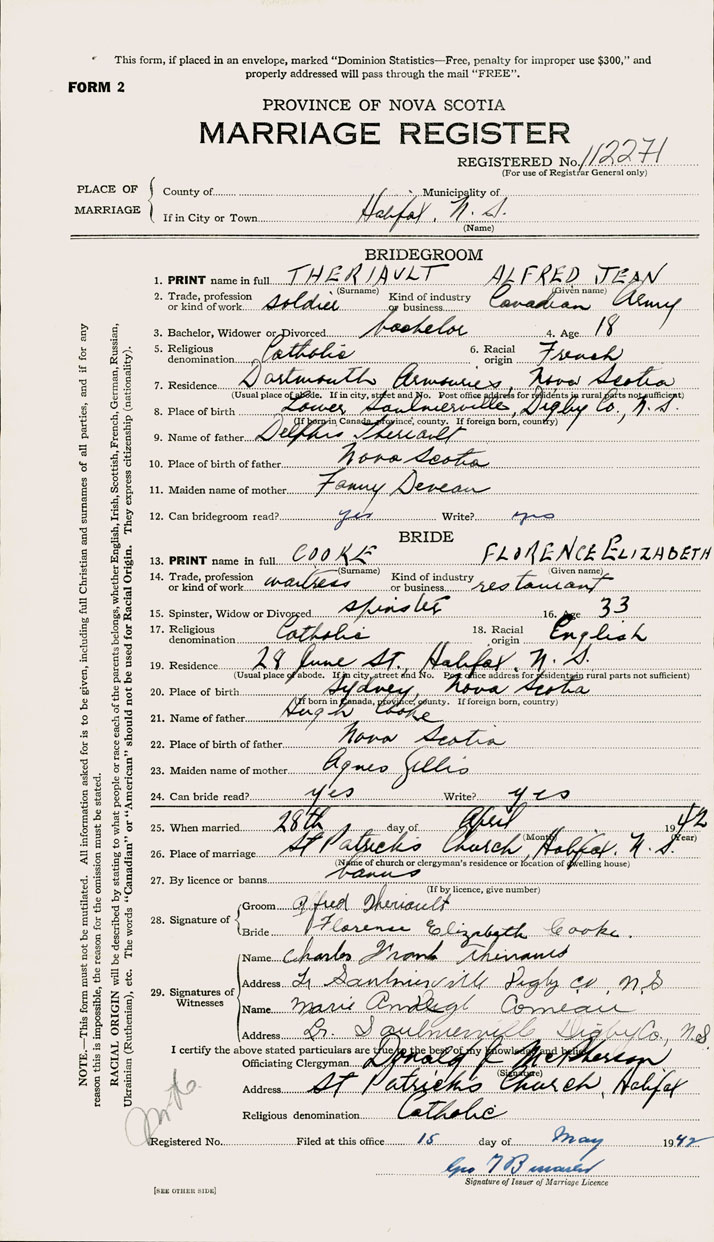 This form, if placed in an envelope, marked "Dominion Statistics—Free, penalty for improper use $300," and
properly addressed will pass through the mail "FREE".
FORM 2
PROVINCE OF NOVA SCOTIA
MARRIAGE REGISTER
REGISTERED No. 112271
(For use of Registrar General only)
PLACE OF MARRIAGE
County of Municipality of
If in City or Town Halifax, N. S.
(Name)
BRIDEGROOM
1. PRINT name in full THERIAULT ALFRED JEAN
(Surname) (Given name)
2. Trade, profession or kind of work soldier Kind of industry or business Canadian Army
3. Bachelor, Widower or Divorced bachelor 4. Age 18
5. Religious denomination Catholic 6. Racial origin French
7. Residence Dartmouth Armouries, Nova Scotia
(Usual place of abode. If in city, street and No. Post office address for residents in rural parts not sufficient)
8. Place of birth Lower Saulnierville, Digby Co., N. S.
(If born in Canada, province, county. If foreign born, country)
9. Name of father Delphis Theriault
10. Place of father Nova Scotia
11. Maiden name of mother Fanny Deveau
12. Can bridegroom read? yes Write? yes
BRIDE
13. PRINT name in full COOKE FLORENCE ELIZABETH
(Surname) (Given name)
14. Trade, profession or kind of work waitress Kind of industry or business restaurant
15. Spinster, Widow or Divorced spinster 16. Age 33
17. Religious denomination Catholic 18. Racial origin English
19. Residence 28 June St., Halifax, N. S.
(Usual place of abode. If in city, street and No. Post office address for residents in rural parts not sufficient)
20. Place of birth Sydney, Nova Scotia
(If born in Canada, province, county. If foreign born, country)
21. Name of father Hugh Cooke
22. Place of birth of father Nova Scotia
23. Maiden name of mother Agnes Gillis
24. Can bride read? yes Write? yes
25. When married 28th day of April 1942
(Month) (Year)
26. Place of marriage St Patrick's Church, Halifax. N. S.
(Name of church or clergyman's residence or location of dwelling house)
27. By licence or banns banns
(If by licence, give number)
28. Signature of
Groom Alfred Theriault
Bride Florence Elizabeth Cooke.
29. Signatures of Witnesses
Name Charles Frank
Address Lr Saulnierville Digby Co, N.S
Name Marie Comeau
Address Lr. Saulnierville Digby Co, N.S.
I certify the above stated particulars are true to the best of my knowledge and belief.
Officiating Clergyman Donald J McPherson
(Signature)
Address St Patrick's Church, Halifax
Religious denomination Catholic
Registered No. Filed at this office 15 day of May 1942
Geo
Signature of Issuer of Marriage Licence
[SEE OTHER SIDE]
NOTE.—This form must not be mutilated. All information asked for is to be given, including full Christian and surnames of all parties, and if for any
reason this is impossible, the reason for the omission must be stated.
RACIAL ORIGIN will be described by stating to what people or race each of the parents belongs, whether English, Irish, Scottish, French, German, Russian,
Ukrainian (Ruthenian), etc. The words "Canadian" or "American" should not be used for Racial Origin. They express citizenship (nationality).